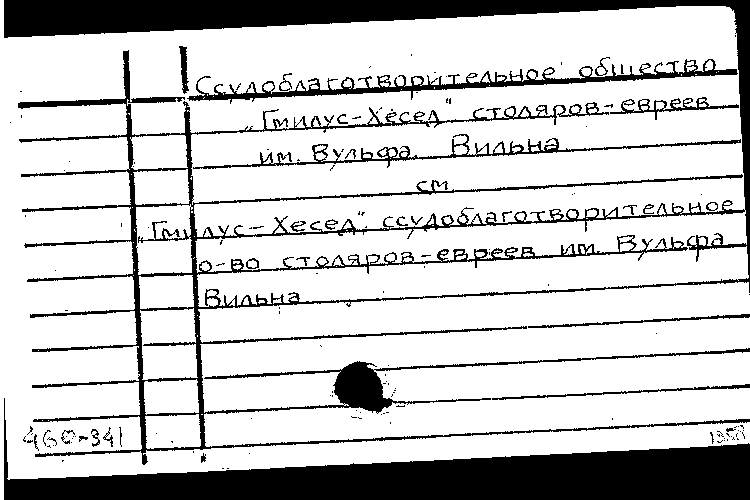 Ссудоблаготворительное общество
„Гмилус-Хесед" столяров-евреев
им. Вульфа. Вильна
см
„Гмилус-Хесед", ссудоблаготворительное
о-во столяров-евреев им. Вульфа
Вильна
460-341